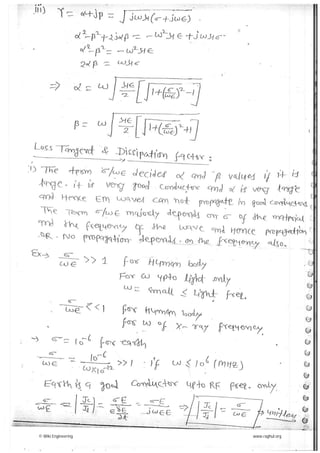 iii) γ = α+jβ = √jωμ(σ+jωε) .
α²-β²+2jαβ = -ω²με + jωμσ
α²-β² = -ω²με
2αβ = ωμσ
⇒ α = ω √με/2 [√1+(σ/ωε)² -1]
β = ω √με/2 [√1+(σ/ωε)² +1]
Loss Tangent & Dissipation factor :
i) The term σ/ωε decides α and β values if it is
large. it is very good conductor and α is very large
and Hence EM waves can not propagate in good conductors.
The Term σ/ωε majorly depends on σ of the material
and the frequency of the wave and Hence propagation
OR. NO propagation depends. on the frequency also.
Ex-> σ/ωε >> 1 for Human body
For ω upto light only
ω = small ≤ light freq.
σ/ωε << 1 for Human body
for ω of X-ray frequency.
→ σ = 10⁻⁶ for earth
σ/ωε = 10⁻⁶/ωx10⁻¹² >> 1 if ω ≤ 10⁶ (MHz)
Earth is a good conductor upto RF freq. only.
σ/ωε = |Jc/Jd| = σE/ε∂E/∂t = σE/jωεE ⇒ |Jc/Jd| = σ/ωε → unitless
© Wiki Engineering www.raghul.org